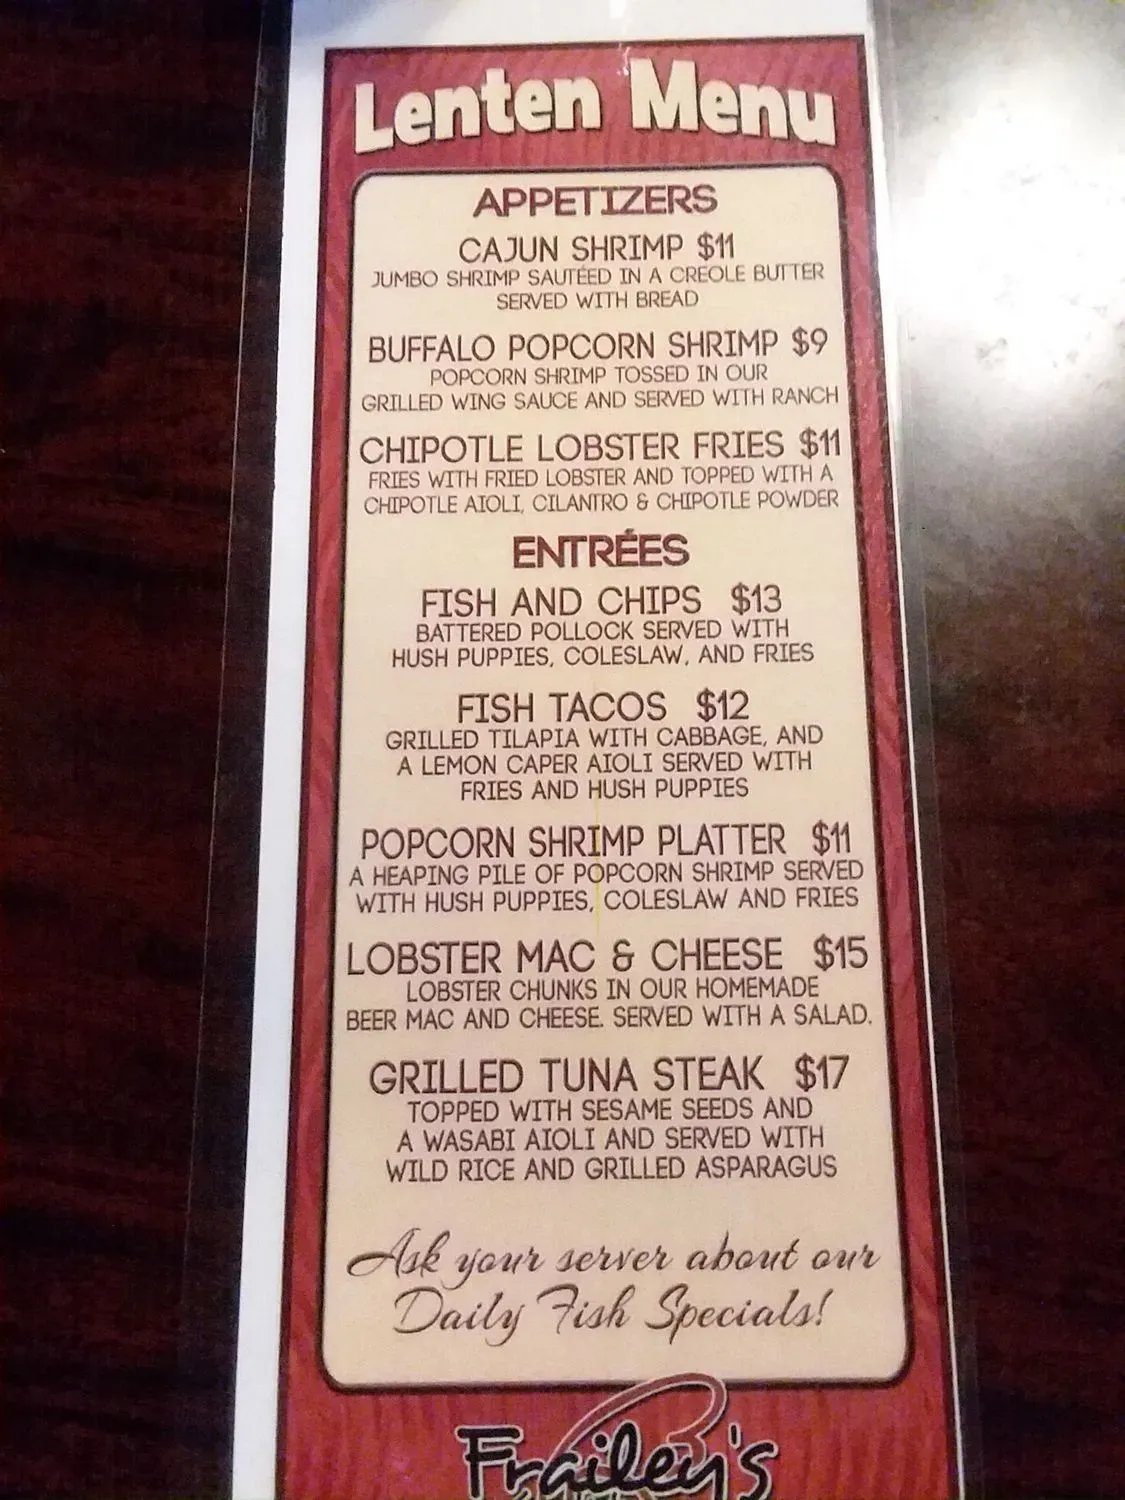 Lenten Menu
APPETIZERS
CAJUN SHRIMP $11
JUMBO SHRIMP SAUTÉED IN A CREOLE BUTTER
SERVED WITH BREAD
BUFFALO POPCORN SHRIMP $9
POPCORN SHRIMP TOSSED IN OUR
GRILLED WING SAUCE AND SERVED WITH RANCH
CHIPOTLE LOBSTER FRIES $11
FRIES WITH FRIED LOBSTER AND TOPPED WITH A
CHIPOTLE AIOLI, CILANTRO & CHIPOTLE POWDER
ENTRÉES
FISH AND CHIPS $13
BATTERED POLLOCK SERVED WITH
HUSH PUPPIES, COLESLAW, AND FRIES
FISH TACOS $12
GRILLED TILAPIA WITH CABBAGE, AND
A LEMON CAPER AIOLI SERVED WITH
FRIES AND HUSH PUPPIES
POPCORN SHRIMP PLATTER $11
A HEAPING PILE OF POPCORN SHRIMP SERVED
WITH HUSH PUPPIES, COLESLAW AND FRIES
LOBSTER MAC & CHEESE $15
LOBSTER CHUNKS IN OUR HOMEMADE
BEER MAC AND CHEESE. SERVED WITH A SALAD.
GRILLED TUNA STEAK $17
TOPPED WITH SESAME SEEDS AND
A WASABI AIOLI AND SERVED WITH
WILD RICE AND GRILLED ASPARAGUS
Ask your server about our
Daily Fish Specials!
Frailey's